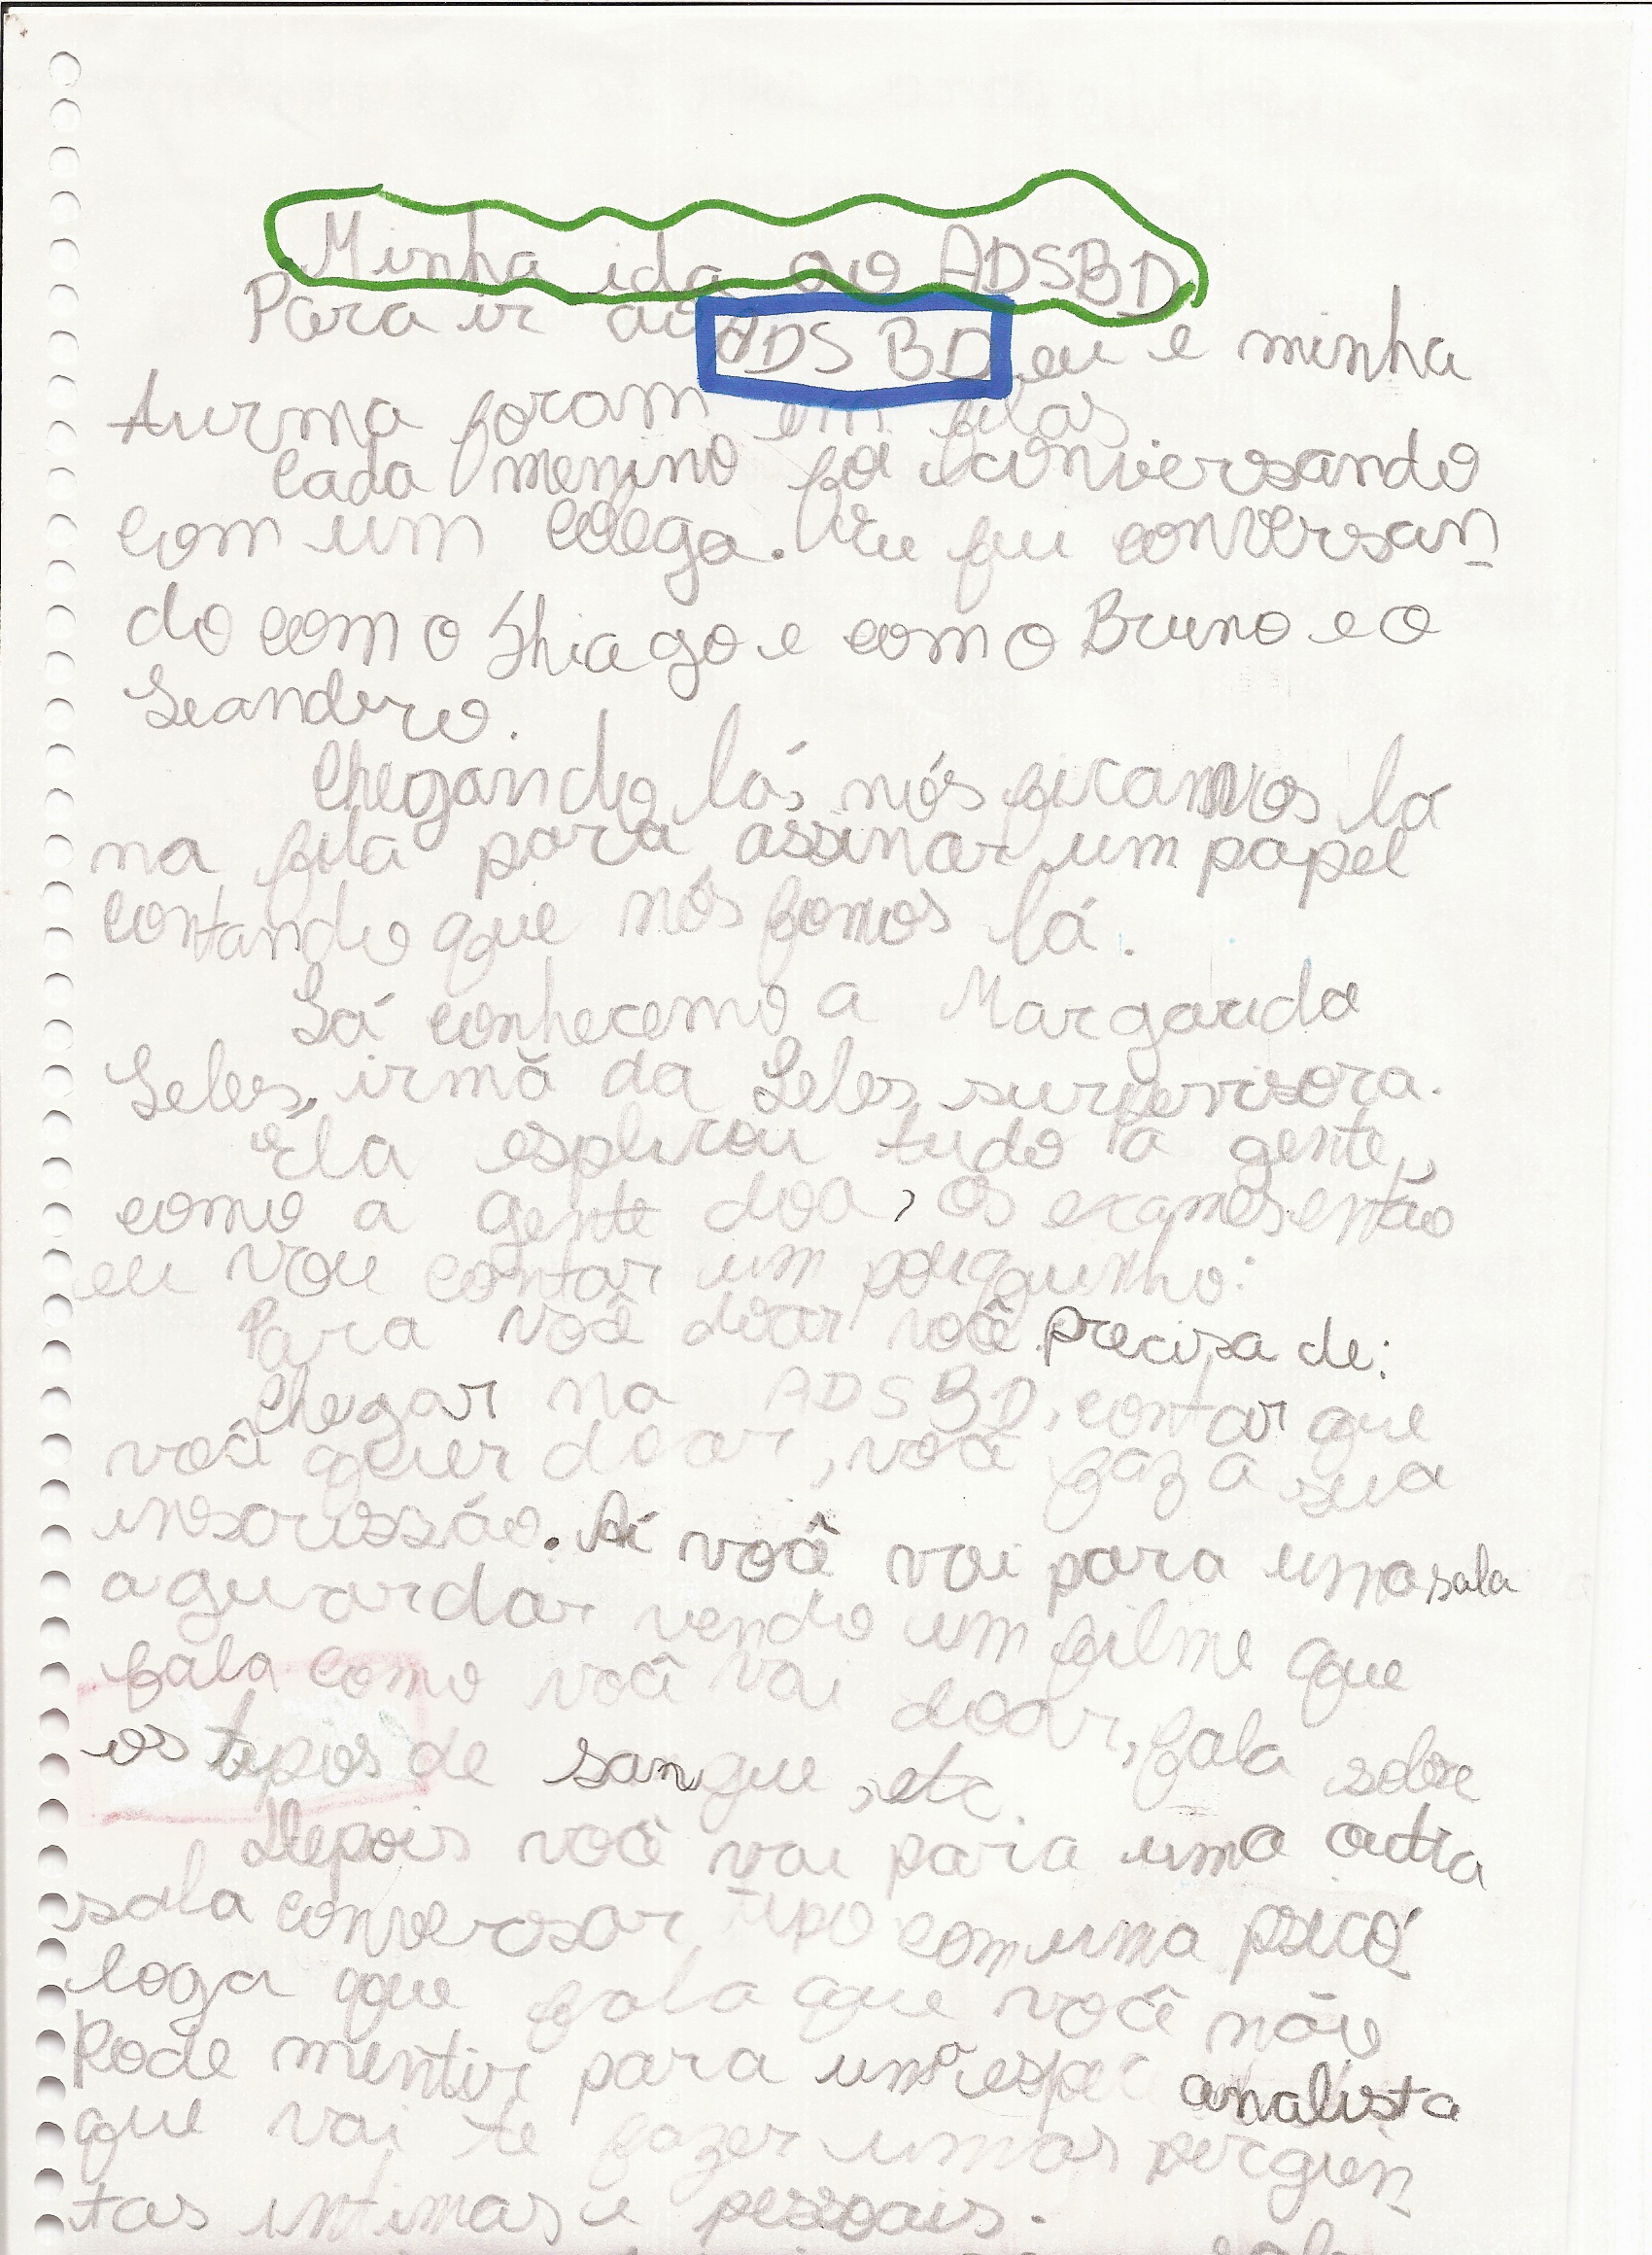 Minha ida ao ADSBD
Para ir ao ADSBD, eu e minha
turma foram em filas
Cada menino foi conversando
com um colega. Eu fui conversan
do com o Thiago e com o Bruno e o
Leandro.
Chegando lá, nós ficamos lá
na fila para assinar um papel
contando que nós fomos lá.
Lá conhecemo a Margarida
Leles, irmã da Leles supervisora.
Ela esplicou tudo a gente,
como a gente doa, os exames então
eu vou contar um pouquinho:
Para você doar você precisa de:
Chegar na ADSBD, contar que
você quer doar, você faz a sua
inscrissão. Aí você vai para uma sala
aguardar vendo um filme que
fala como você vai doar, fala sobre
os tipos de sangue, etc.
Depois você vai para uma outra
sala conversar tipo com uma psicó
loga que fala que você não
pode mentir para uma analista
que vai te fazer umas pergun
tas intimas e pessoais.